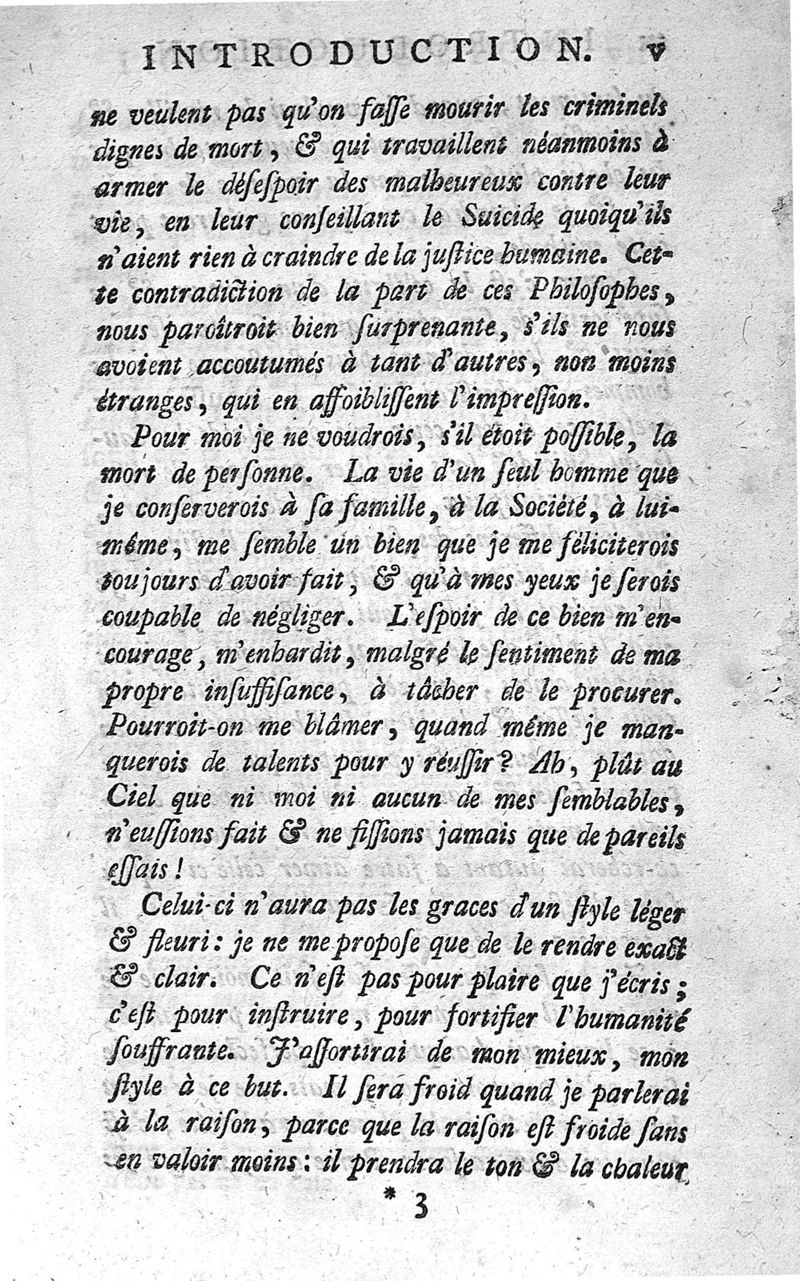 INTRODUCTION. v
ne veulent pas qu'on faſſe mourir les criminels
dignes de mort, & qui travaillent néanmoins à
armer le déſeſpoir des malheureux contre leur
vie, en leur conſeillant le Suicide quoiqu'ils
n'aient rien à craindre de la juſtice humaine. Cet-
te contradiction de la part de ces Philoſophes,
nous paroîtroit bien ſurprenante, s'ils ne nous
avoient accoutumés à tant d'autres, non moins
étranges, qui en affoibliſſent l'impreſſion.
Pour moi je ne voudrois, s'il étoit poſſible, la
mort de perſonne. La vie d'un ſeul homme que
je conſerverois à ſa famille, à la Société, à lui-
même, me ſemble un bien que je me féliciterois
toujours d'avoir fait, & qu'à mes yeux je ſerois
coupable de négliger. L'eſpoir de ce bien m'en-
courage, m'enhardit, malgré le ſentiment de ma
propre inſuffiſance, à tâcher de le procurer.
Pourroit-on me blâmer, quand même je man-
querois de talents pour y réuſſir? Ah, plût au
Ciel que ni moi ni aucun de mes ſemblables,
n'euſſions fait & ne fiſſions jamais que de pareils
eſſais!
Celui-ci n'aura pas les graces d'un ſtyle léger
& fleuri: je ne me propoſe que de le rendre exact
& clair. Ce n'eſt pas pour plaire que j'écris;
c'eſt pour inſtruire, pour fortifier l'humanité
ſouffrante. J'aſſortirai de mon mieux, mon
ſtyle à ce but. Il ſera froid quand je parlerai
à la raiſon, parce que la raiſon eſt froide ſans
en valoir moins: il prendra le ton & la chaleur
* 3